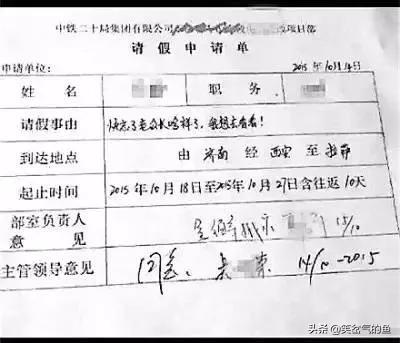 中铁二十局集团有限公司 项目部
请假申请单
申请单位: 2015年10月14日
姓名 职务
请假事由 快忘了老公长啥样了,我想去看看!
到达地点 由 济南 经 西安 至 拉萨
起止时间 2015年10月18日至2015年10月27日含往返10天
部室负责人意见 15/10
主管领导意见 同意 14/10-2015
头条@笑岔气的鱼